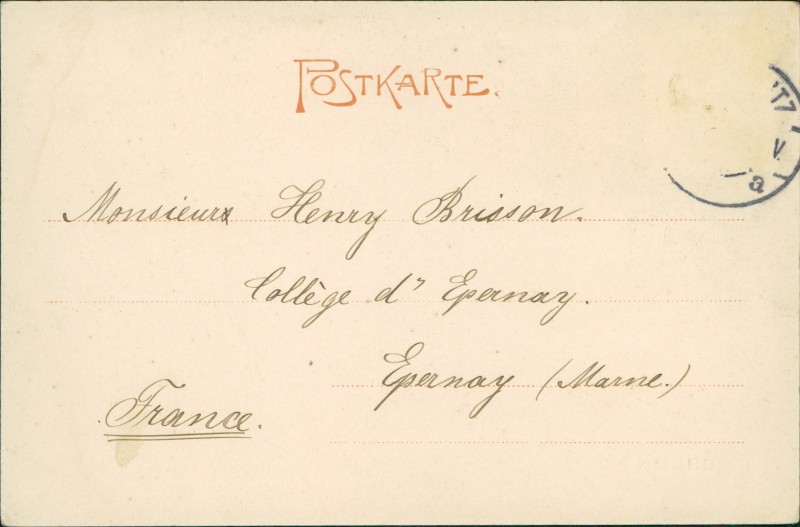 POSTKARTE.
Monsieur Henry Brisson.
Collège d' Epernay.
Epernay (Marne.)
France.
TZ
V
a